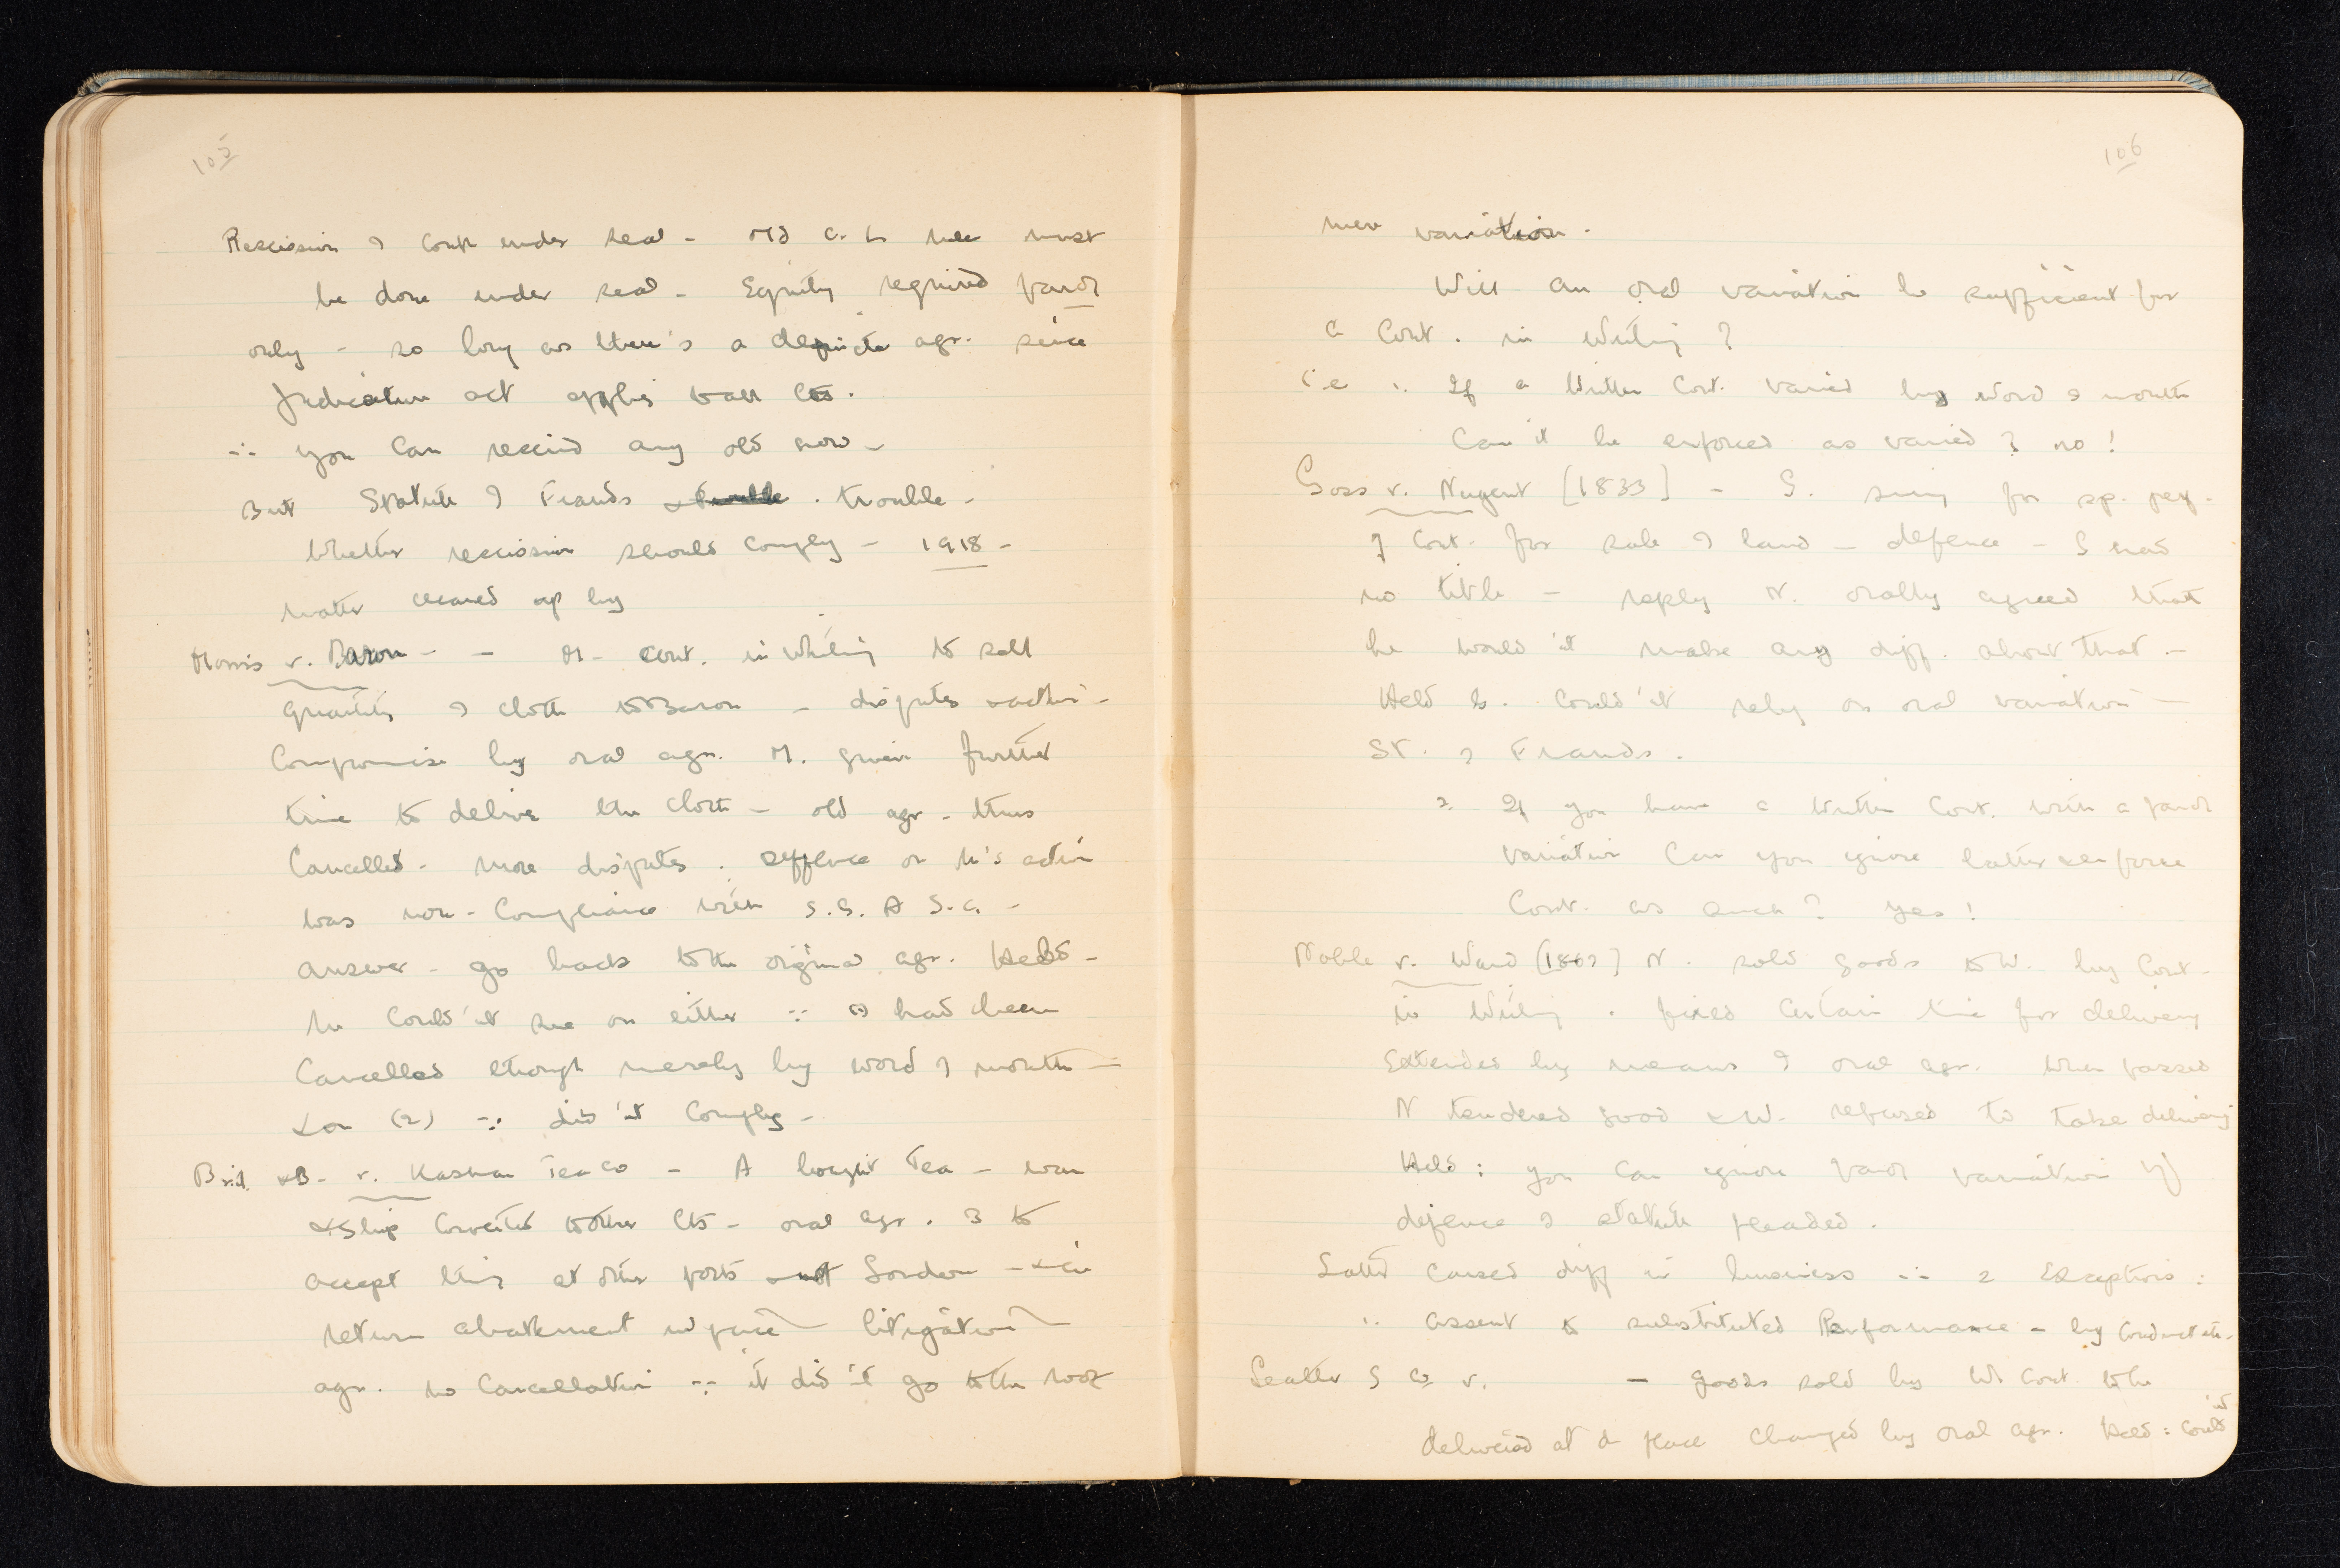 105
Rescission of Cont under seal - old C. L rule must
be done under seal - Equity required parol
only - so long as there's a definite agr. since
Judicature act applies to all Cts.
∴ you can rescind any old now -
But Statute of Frauds trouble -
Whether rescission should comply - 1918 -
matter cleared up by
Morris v. Baron - - M - cont. in writing to sell
quantity of cloth to Baron - disputes
Compromise by oral agr. M. given further
time to deliver the cloth - old agr. thus
Cancelled - more disputes. defence on M's action
was non-compliance with S. G. A S.C. -
answer - go back to the original agr. Held -
he could'nt sue on either ∵ (1) had been
Cancelled though merely by word of mouth -
& on (2) ∵ did'nt comply -
Brit. & B. v. Kashan Tea Co - A bought Tea - war
& ship to other - oral agr. B to
accept things at other ports not London - & in
return abatement in price - litigation -
agr. no Cancellation ∵ it did'nt go to the root
106
mere variation.
Will an oral variation be sufficient for
a Cont. in Writing?
i.e 1. If a Written Cont. varied by word of mouth
Can it be enforced as varied? no!
Goss v. Nugent [1833] - G. suing for sp. perf.
of Cont. for sale of land - defence - G had
no title - reply N. orally agreed that
he would'nt make any diff. about that. -
Held G. Could'nt rely on oral variation -
St. of Frauds.
2. If you have a Written Cont. with a parol
variation Can you ignore latter & enforce
Cont. as such? yes!
Noble v. Ward [1867] N. sold goods to W. by Cont-
in Writing. fixed Certain time for delivery
Extended by means of oral agr. When passed
N tendered good & W. refused to take delivery
Held: you can ignore parol variation if
defence of statute pleaded.
Latter caused diff in business ∴ 2 Exceptions:
1. assent to substituted Performance - by conduct etc.
Leather S Co v. - goods sold by W. Cont. to be
delivered at a place changed by oral agr. Held: could'nt